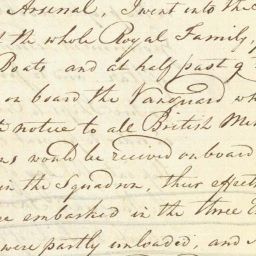 Arsenal, I went into the
the whole Royal Family,
Boats and at half past 9
on board the Vanguard wh
notice to all British Me
ns would be recived onboard
in the Squadron, their effect
embarked in the three
were partly unloaded, and